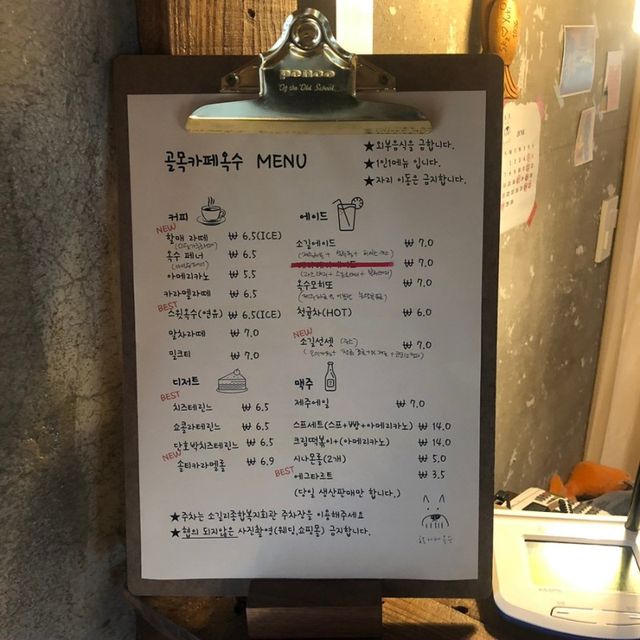 penco
Of the Old School
골목카페옥수 MENU
★외부음식을 금합니다.
★1인1메뉴 입니다.
★자리 이동은 금지합니다.
커피
NEW
할매 라떼 ₩ 6.5(ICE)
옥수 페너 ₩ 6.5
아메리카노 ₩ 5.5
카라멜라떼 ₩ 6.5
BEST
스윗옥수(연유) ₩ 6.5(ICE)
말차라떼 ₩ 7.0
밀크티 ₩ 7.0
에이드
소길에이드 ₩ 7.0
₩ 7.0
옥수모히또 ₩ 7.0
청귤차(HOT) ₩ 6.0
NEW
소길선셋 ₩ 7.0
디저트
BEST
치즈테린느 ₩ 6.5
쇼콜라테린느 ₩ 6.5
단호박치즈테린느 ₩ 6.5
NEW
솔티카라멜롱 ₩ 6.9
맥주
제주에일 ₩ 7.0
스프세트(스프+빵+아메리카노) ₩ 14.0
크림떡볶이+(아메리카노) ₩ 14.0
시나몬롤(2개) ₩ 5.0
BEST
에그타르트 ₩ 3.5
(당일 생산판매만 합니다.)
★주차는 소길리종합복지회관 주차장을 이용해주세요
★협의 되지않은 사진촬영(웨딩,쇼핑몰) 금지합니다.